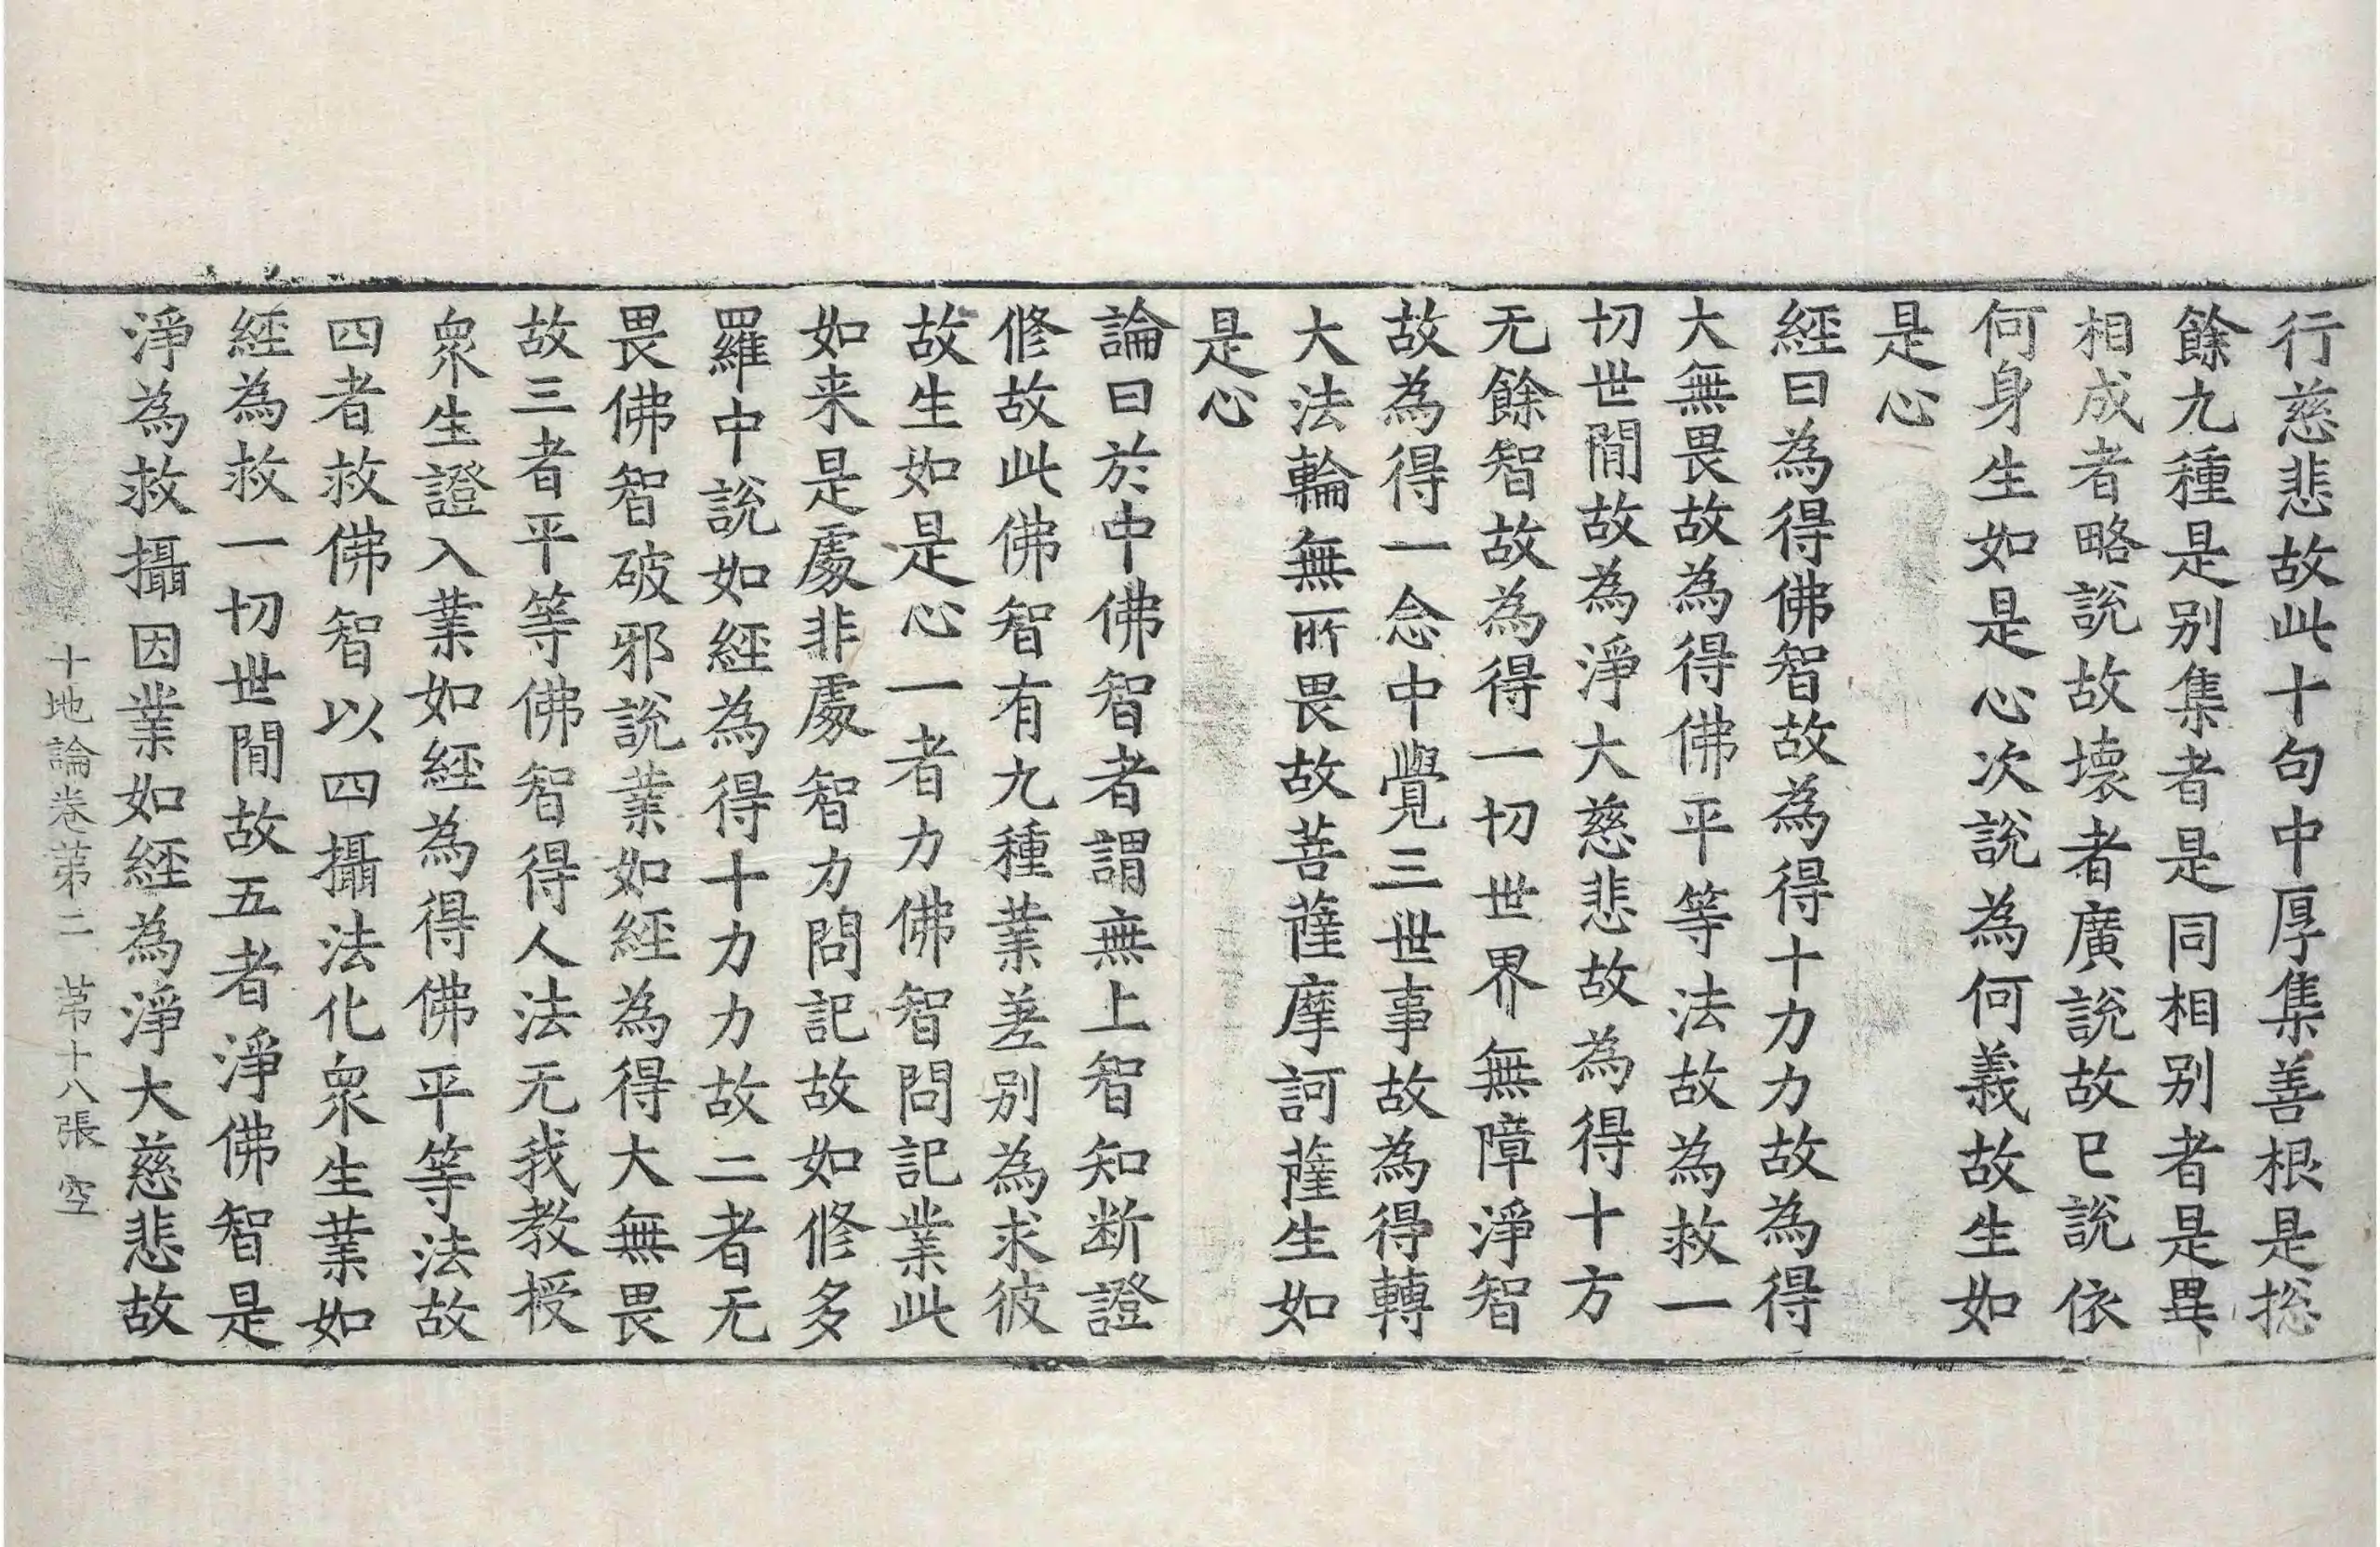 行慈悲故此十句中厚集善根是捴
餘九種是别集者是同相别者是異
相成者略說故壞者廣說故已說依
何身生如是心次說為何義故生如
是心
經曰為得佛智故為得十力力故為得
大無畏故為得佛平等法故為救一
切世間故為淨大慈悲故為得十方
无餘智故為得一切世界無障淨智
故為得一念中覺三世事故為得轉
大法輪無所畏故菩薩摩訶薩生如
是心
論曰於中佛智者謂無上智知断證
修故此佛智有九種業差别為求彼
故生如是心一者力佛智問記業此
如来是處非處智力問記故如修多
羅中說如經為得十力力故二者无
畏佛智破邪說業如經為得大無畏
故三者平等佛智得人法无我教授
衆生證入業如經為得佛平等法故
四者救佛智以四攝法化衆生業如
經為救一切世間故五者淨佛智是
淨為救攝因業如經為淨大慈悲故
十地論卷苐二 苐十八張 空